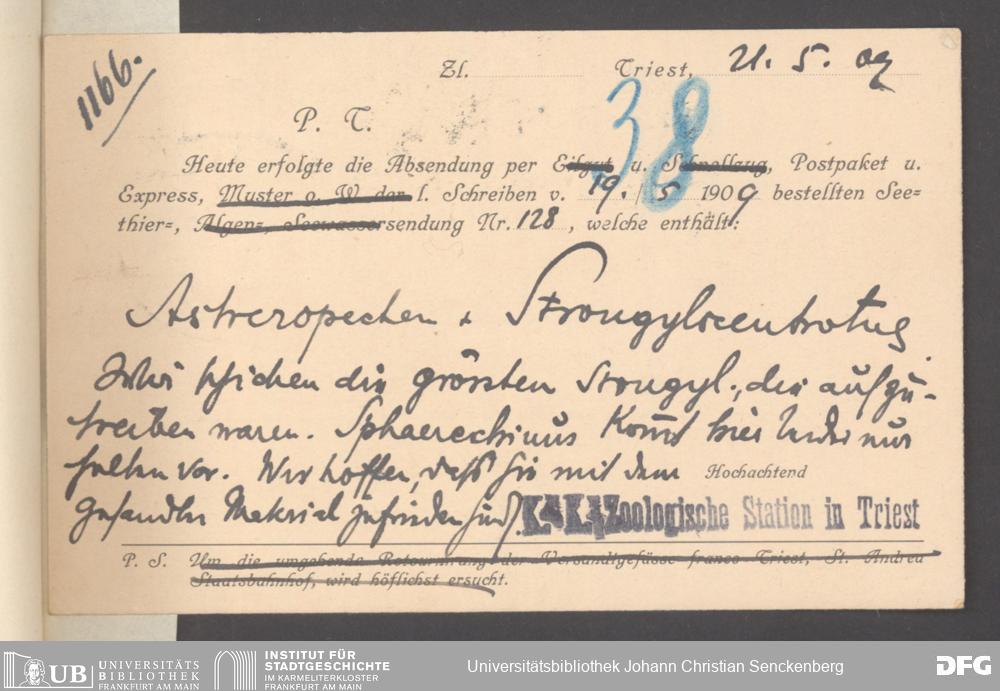 1166.
Zl. Triest, 21. 5. 09
38
P. T.
Heute erfolgte die Absendung per Eilgut u. Schnellzug, Postpaket u.
Express, Muster o. W. der l. Schreiben v. 19./5 1909 bestellten See=
thier=, Algen=, Seewassersendung Nr. 128, welche enthält:
Astreropecten + Strongylocentrotus
Wir schicken die grössten Strongyl., die aufzu-
treiben waren. Sphaerechinus kommt hier leider nur
selten vor. Wir hoffen, daß Sie mit dem
Hochachtend
gesandten Material zufrieden sind.
K. K. Zoologische Station in Triest
P. S. Um die umgehende Retournirung der Versandtgefässe franco Triest, St. Andrea
Staatsbahnhof, wird höflichst ersucht.
UB UNIVERSITÄTS
BIBLIOTHEK
FRANKFURT AM MAIN
INSTITUT FÜR
STADTGESCHICHTE
IM KARMELITERKLOSTER
FRANKFURT AM MAIN
Universitätsbibliothek Johann Christian Senckenberg
DFG